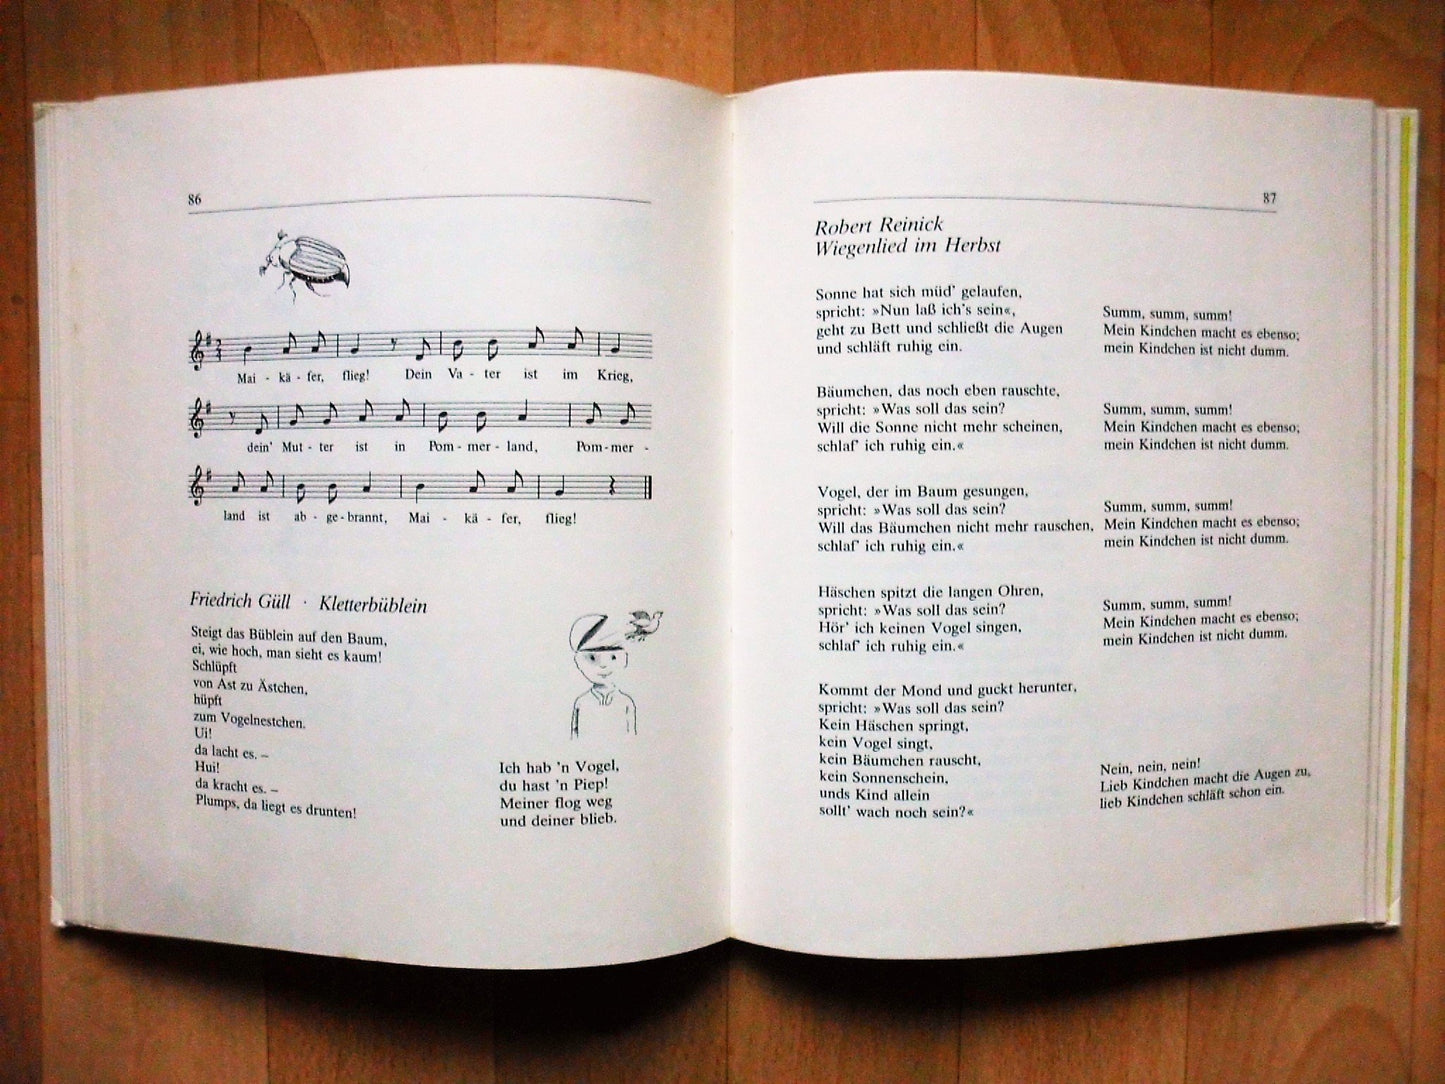 86
Mai - kä - fer, flieg! Dein Va - ter ist im Krieg,
dein' Mut - ter ist in Pom - mer - land, Pom - mer -
land ist ab - ge - brannt, Mai - kä - fer, flieg!
Friedrich Güll · Kletterbüblein
Steigt das Büblein auf den Baum,
ei, wie hoch, man sieht es kaum!
Schlüpft
von Ast zu Ästchen,
hüpft
zum Vogelnestchen.
Ui!
da lacht es. –
Hui!
da kracht es. –
Plumps, da liegt es drunten!
Ich hab 'n Vogel,
du hast 'n Piep!
Meiner flog weg
und deiner blieb.
87
Robert Reinick
Wiegenlied im Herbst
Sonne hat sich müd' gelaufen,
spricht: »Nun laß ich's sein«,
geht zu Bett und schließt die Augen
und schläft ruhig ein.
Summ, summ, summ!
Mein Kindchen macht es ebenso;
mein Kindchen ist nicht dumm.
Bäumchen, das noch eben rauschte,
spricht: »Was soll das sein?
Will die Sonne nicht mehr scheinen,
schlaf' ich ruhig ein.«
Summ, summ, summ!
Mein Kindchen macht es ebenso;
mein Kindchen ist nicht dumm.
Vogel, der im Baum gesungen,
spricht: »Was soll das sein?
Will das Bäumchen nicht mehr rauschen,
schlaf' ich ruhig ein.«
Summ, summ, summ!
Mein Kindchen macht es ebenso;
mein Kindchen ist nicht dumm.
Häschen spitzt die langen Ohren,
spricht: »Was soll das sein?
Hör' ich keinen Vogel singen,
schlaf' ich ruhig ein.«
Summ, summ, summ!
Mein Kindchen macht es ebenso;
mein Kindchen ist nicht dumm.
Kommt der Mond und guckt herunter,
spricht: »Was soll das sein?
Kein Häschen springt,
kein Vogel singt,
kein Bäumchen rauscht,
kein Sonnenschein,
unds Kind allein
sollt' wach noch sein?«
Nein, nein, nein!
Lieb Kindchen macht die Augen zu,
lieb Kindchen schläft schon ein.